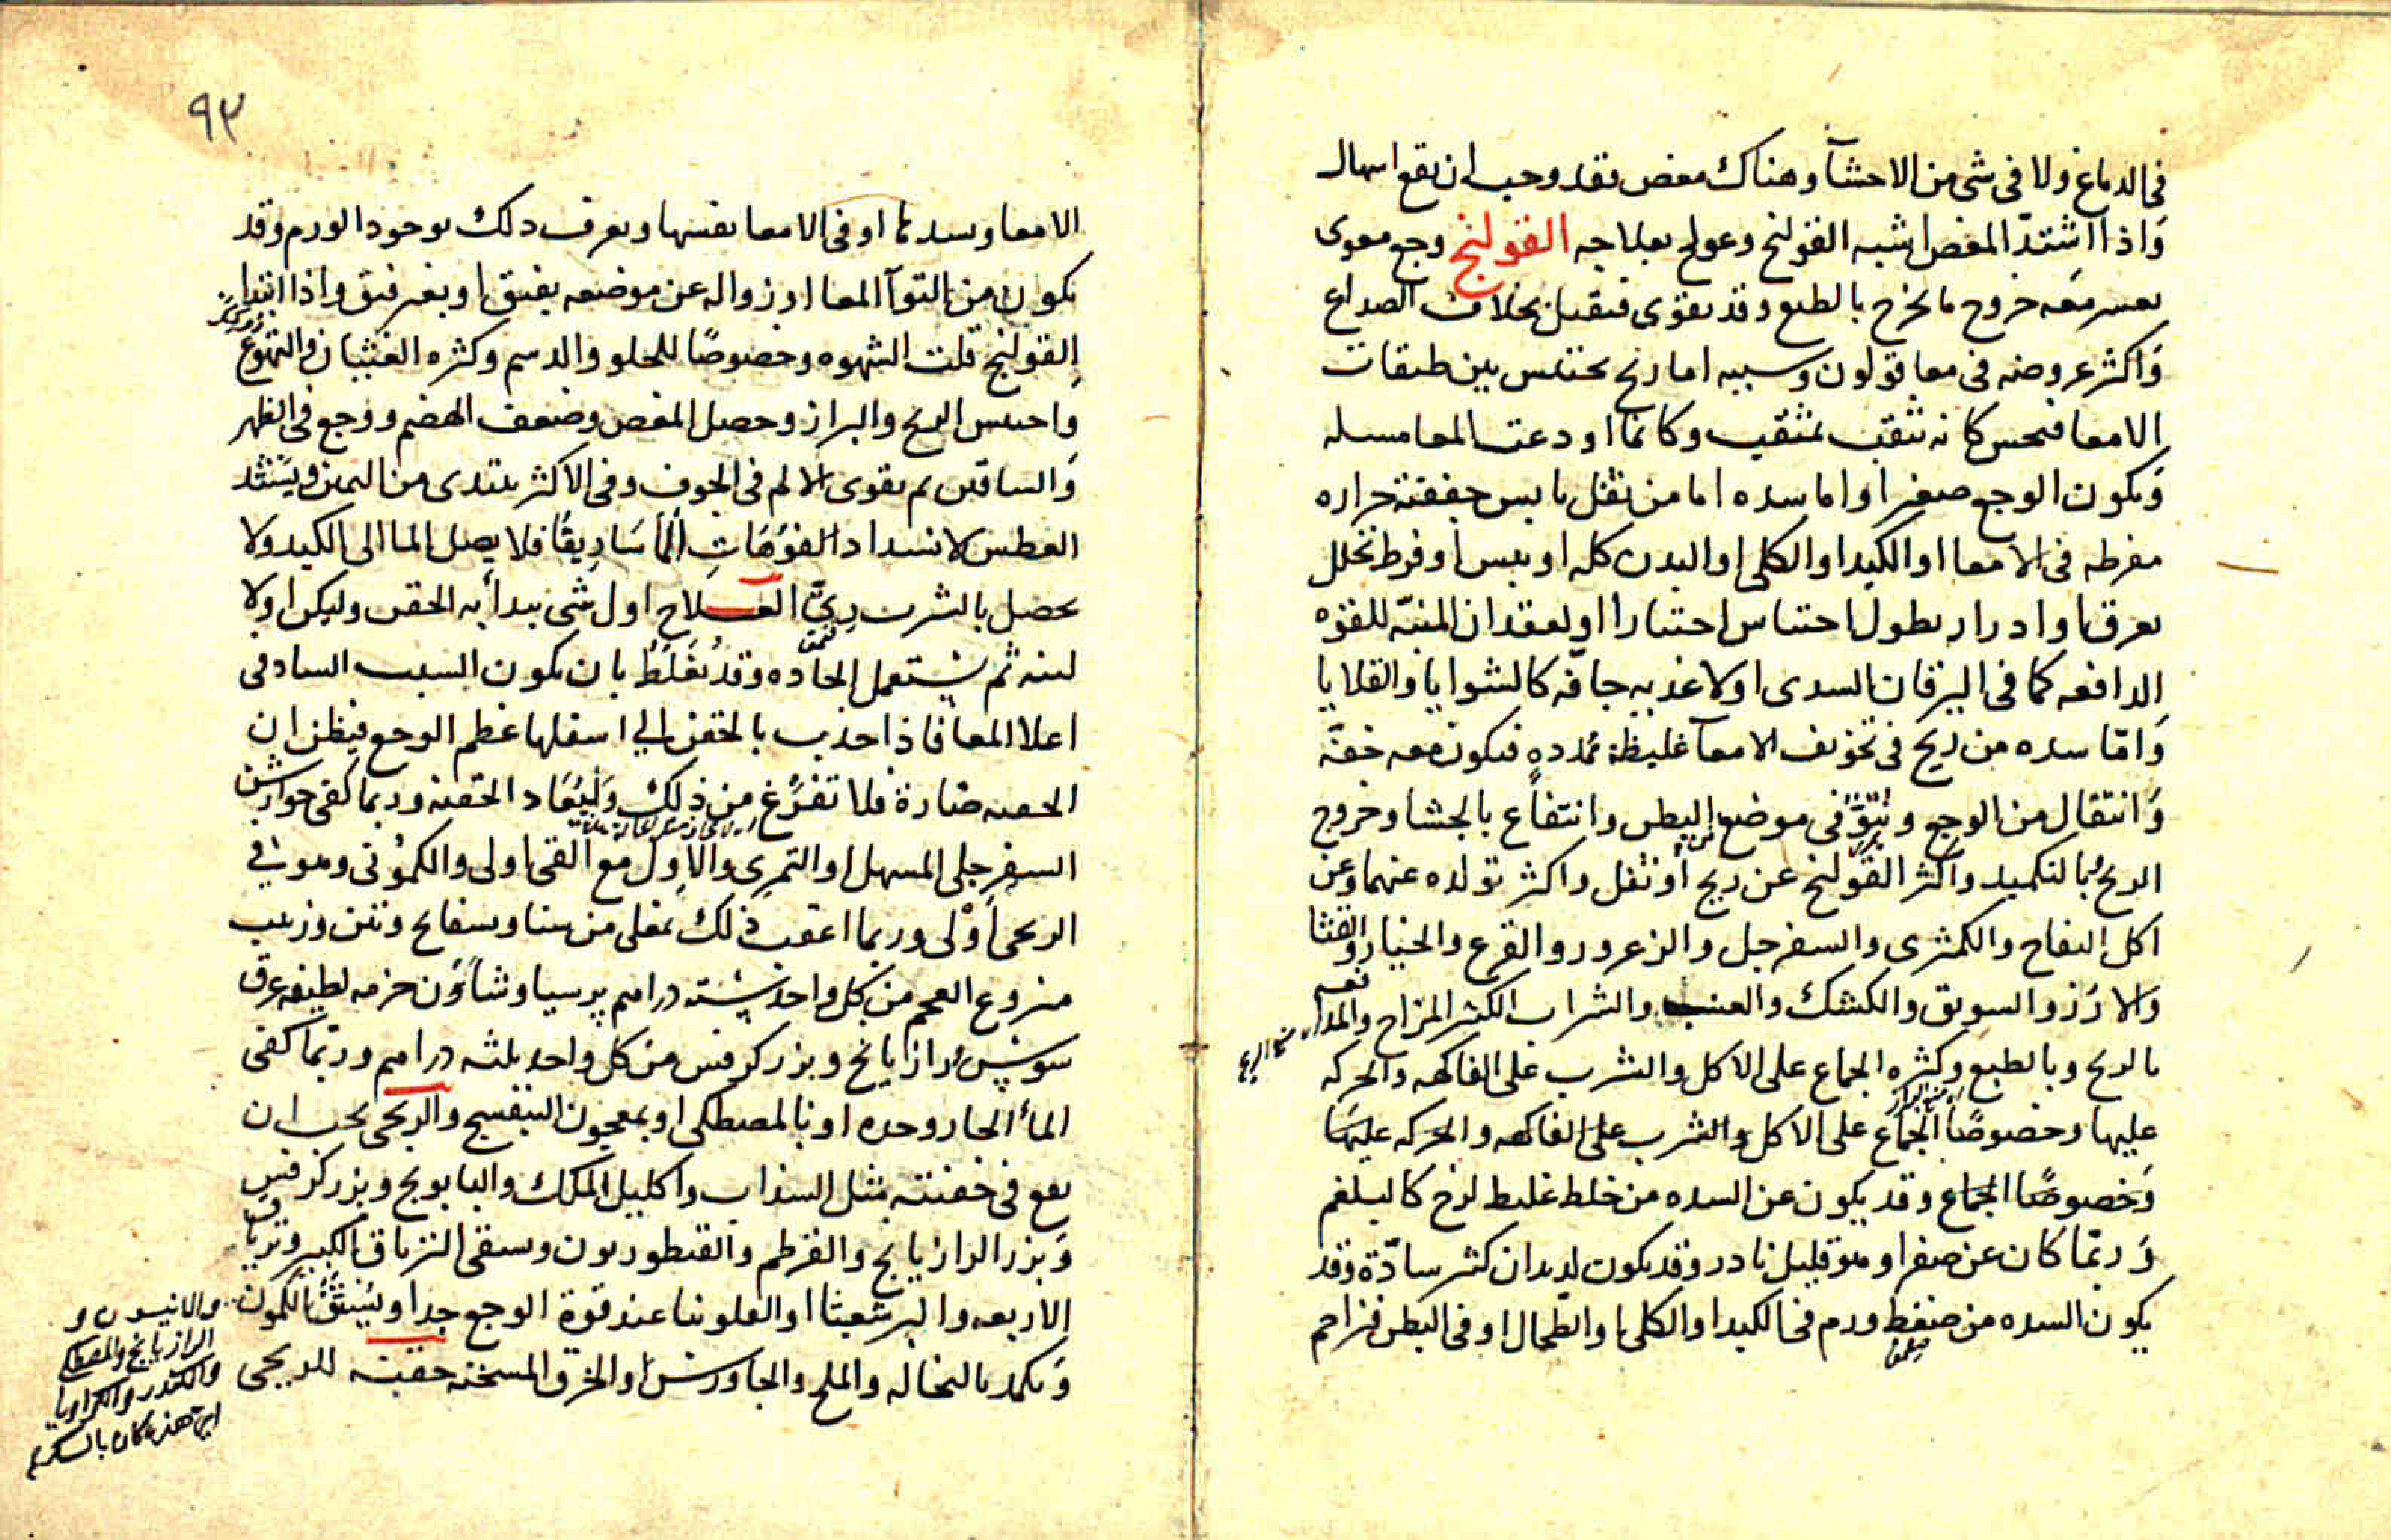 فى الدماغ ولا فى شى من الاحشآ وهناك مغص فقد وجب ان يقع اسهال
وَاذا اشتدّ المغص اشبه القولنج وعولج بعلاجه القولنج وجع معوى
يعسر مَعَه خروج ما يخرج بالطبع وقد يقوى فيقتل بخلاف الصداع
وَاكثر عروضه فى معا قولون وسببه اما ريح يحتبس بين طبقات
الامعا فيحس كانه يثقب بمثقب وكانما اودعت المعا مسله
وَيكون الوجع صغيرا واما سده اما من ثفل يابس جففته حراره
مفرطه فى الامعا او الكبد او الكلى او البدن كله او يبس او فرط تحلل
بعرق او ادرار بطول احتباس احتبارا او لفقدان المنبّه للقوه
الدافعه كما فى اليرقان السدى او لاغذيه جافّه كالشوايا والقلايا
وَامّا سده من ريح فى تجويف الامعآ غليظة ممدده فيكون معه خفّه
وَانتقال من الوجع ونتوّ فى موضع البطن وانتفاع بالجشا وخروج
الريح وبالتكميد واكثر القولنج عن ريح او ثفل واكثر تولده عنهما وعن
اكل التفاح والكمثرى والسفرجل والزعرور والقرع والخيار والقثا
والارُز والسويق والكشك والعنب والشراب الكثير المزاج والمدافعه
بالريح وبالطبع وكثره الجماع على الاكل والشرب على الفاكهه والحركه
عليها وخصوصًا الجماع على الاكل والشرب على الفاكهه والحركه عليها
وَخصوصًا الجماع وقد يكون عن السده من خلط غليظ لزج كالبلغم
وَربّما كان عن صفرا وهو قليل نادر وقد يكون لديدان كثر سادّة وقد
يكون السده من ضغط ورم فى الكبد او الكلى او الطحال او فى البطن فزاحم
٩٣
الامعا وسدها او فى الامعا نفسها ويعرف ذلك بوجود الورم وقد
يكون من التوآ المعا او زواله عن موضعه بفتق او بغير فتق واذا ابتدا
القولنج قلت الشهوه وخصوصًا للحلو والدسم وكثره الغثيان والتهوع
وَاحتبس الريح والبراز وحصل المغص وضعف الهضم ووجع فى الظهر
وَالساقين ثم يقوى الالم فى الجوف وفى الاكثر يبتدى من اليمين ويشتد
العطش لانسداد الفوّهَات المَاسَاريقا فلا يصل الما الى الكبد ولا
يحصل بالشرب رِىّ العـلاج اول شى يبدأ به الحقن وليكن اولا
لينه ثم يستعمل الحاده وقد يُغلَطُ بان يكون السبب الساد فى
اعلا المعا فاذا جذب بالحقن الى اسفلها عظم الوجع فيظن ان
الحقنه ضارة فلا تفزّع من ذلك وليُعَاد الحقنه وربما كفى جوارشن
السفرجلى المسهل او التمرى والاول مع القى اولى والكمّونى وهو فى
الريحى أَوْلى وربما اعقب ذلك بمغلى من سنا وبسفايج وتين وزبيب
منزوع العجم من كل واحد ستة دراهم پرسياوشاَوُن حزمه لطيفه عرق
سوس ورازيانج وبزر كرفس من كل واحد ثلثه دراهم وربّما كفى
المآ الحار وحده او بالمصطكى او بمعجون البنفسج والريحى يجب ان
يقع فى حقنته مثل السذاب واكليل الملك والبابونج وبزر كرفس
وَبزر الرازيانج والقرطم والقنطوريون وسقى الترياق الكبير وترياق
الاربعه والبرشعثا او الفلونيا عند قوة الوجع جدا ويُستَفُّ الكمون
وَيكمد بالنخاله والملح والجاورس او الخرق المسخنه حقنة للريحى
والانيسون و
الرازيانج والمصطكى
والكندر والكراويا